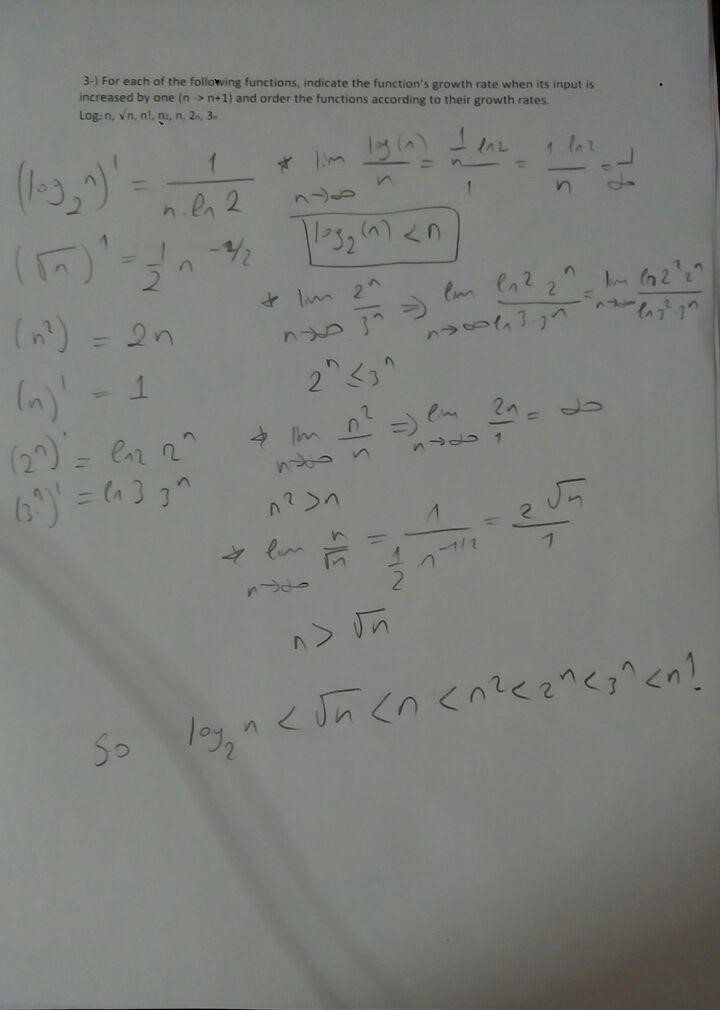 3-) For each of the following functions, indicate the function's growth rate when its input is
increased by one (n -> n+1) and order the functions according to their growth rates.
Log₂ n, √n, n!, n₂, n, 2ₙ, 3ₙ
(log₂ n)' = 1 / n.ln 2
(√n)' = 1/2 n^-1/2
(n²) = 2n
(n)' = 1
(2ⁿ)' = ln2 2ⁿ
(3ⁿ)' = ln 3 3ⁿ
* lim n→∞ log(n)/n = 1/n. ln2 / 1 = 1. ln2 / n = 1/∞
log₂(n) < n
* lim n→∞ 2ⁿ/3ⁿ ⇒ lim n→∞ ln2 2ⁿ / ln 3. 3ⁿ = lim n→∞ ln2² 2ⁿ / ln3². 3ⁿ
2ⁿ ≤ 3ⁿ
* lim n→∞ n²/n ⇒ lim n→∞ 2n/1 = ∞
n² > n
* lim n→∞ n/√n = 1 / 1/2 n^-1/2 = 2√n / 1
n > √n
So log₂ n < √n < n < n² < 2ⁿ < 3ⁿ < n!